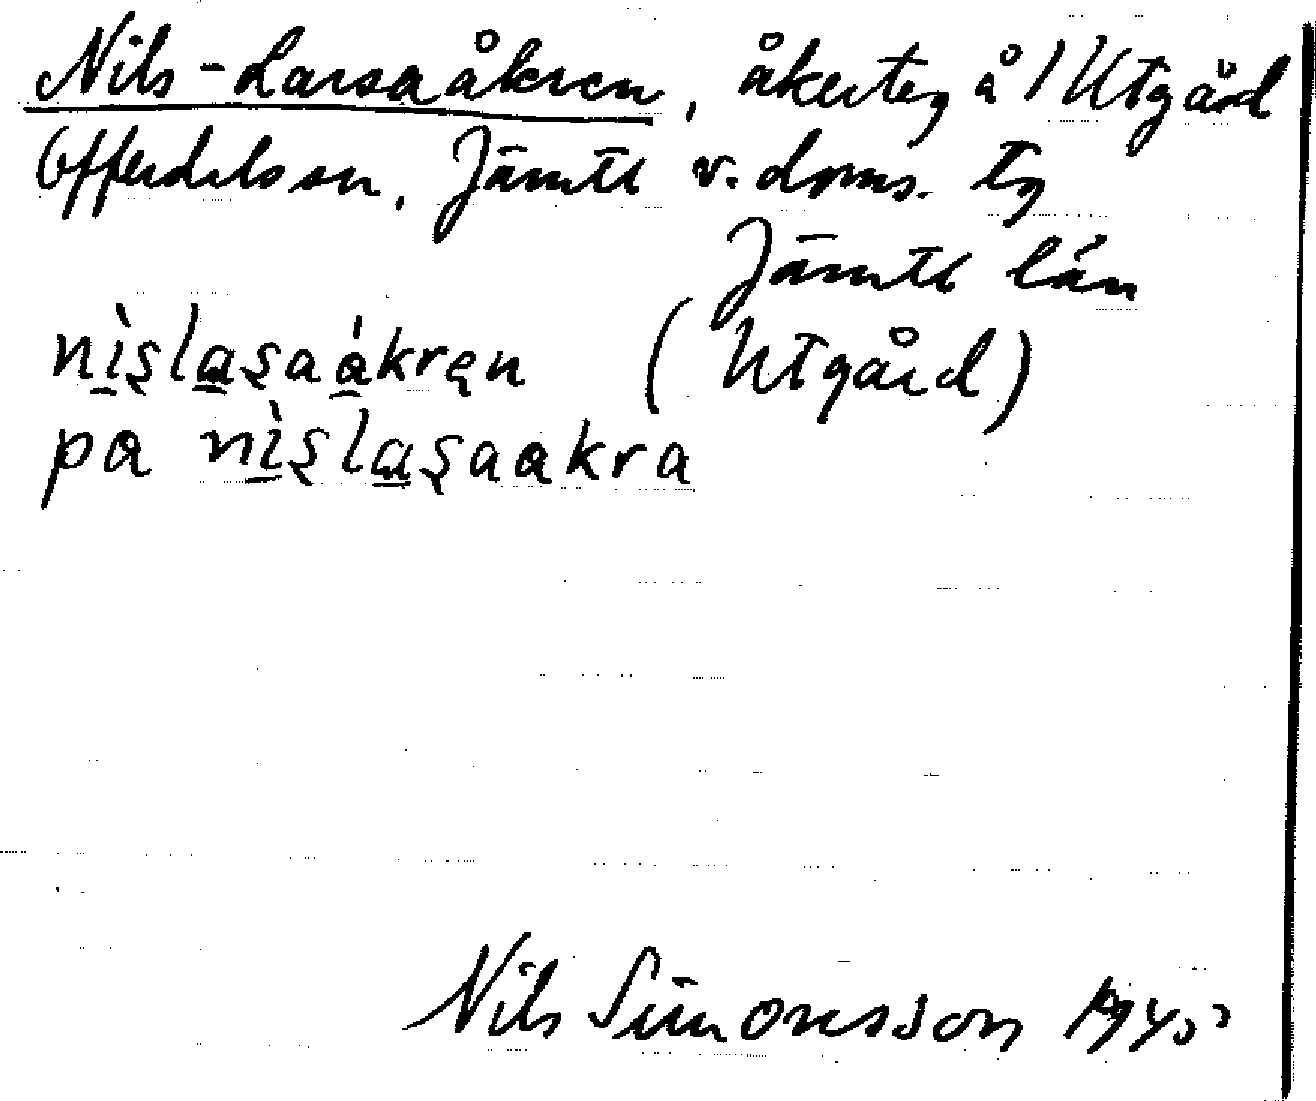 Nils-Larsaåkren, åkerteg å 1 Utgård
Offerdals sn, Jämtl v. doms. tg
Jämtl län
nìʂlaʂaákrən (Utgård)
pa nìʂlaʂaakra
Nils Simonsson